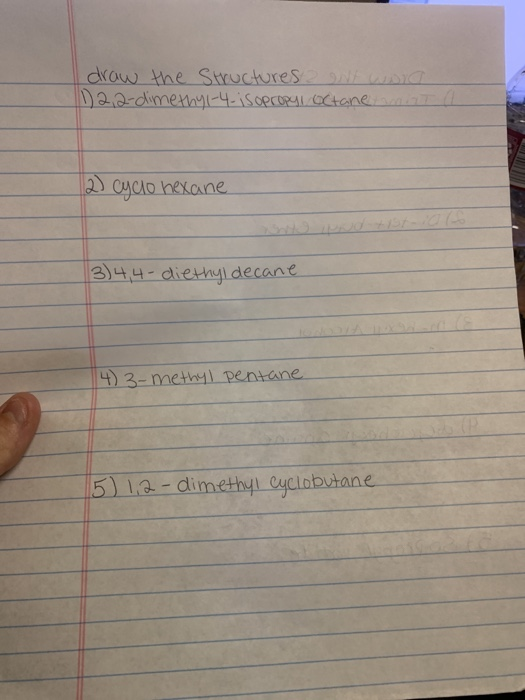 draw the Structures
1) 2,2-dimethyl-4-isopropyl octane
2) cyclo hexane
3) 4,4-diethyl decane
4) 3-methyl pentane
5) 1,2-dimethyl cyclobutane